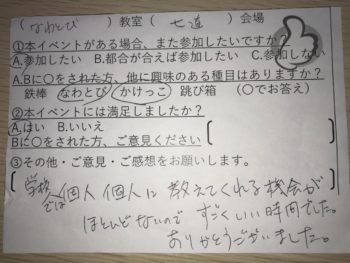 (なわとび)教室(七道)会場
①本イベントがある場合、また参加したいですか?
A.参加したい B.都合が合えば参加したい C.参加しない
A.Bに○をされた方、他に興味のある種目はありますか?
鉄棒 なわとび かけっこ 跳び箱 (○でお答え)
②本イベントには満足しましたか?
A.はい B.いいえ
Bに○をされた方、ご意見ください
③その他・ご意見・ご感想をお願いします。
学校では個人個人に教えてくれる機会が
ほとんどないので すごくいい時間でした。
ありがとうございました。